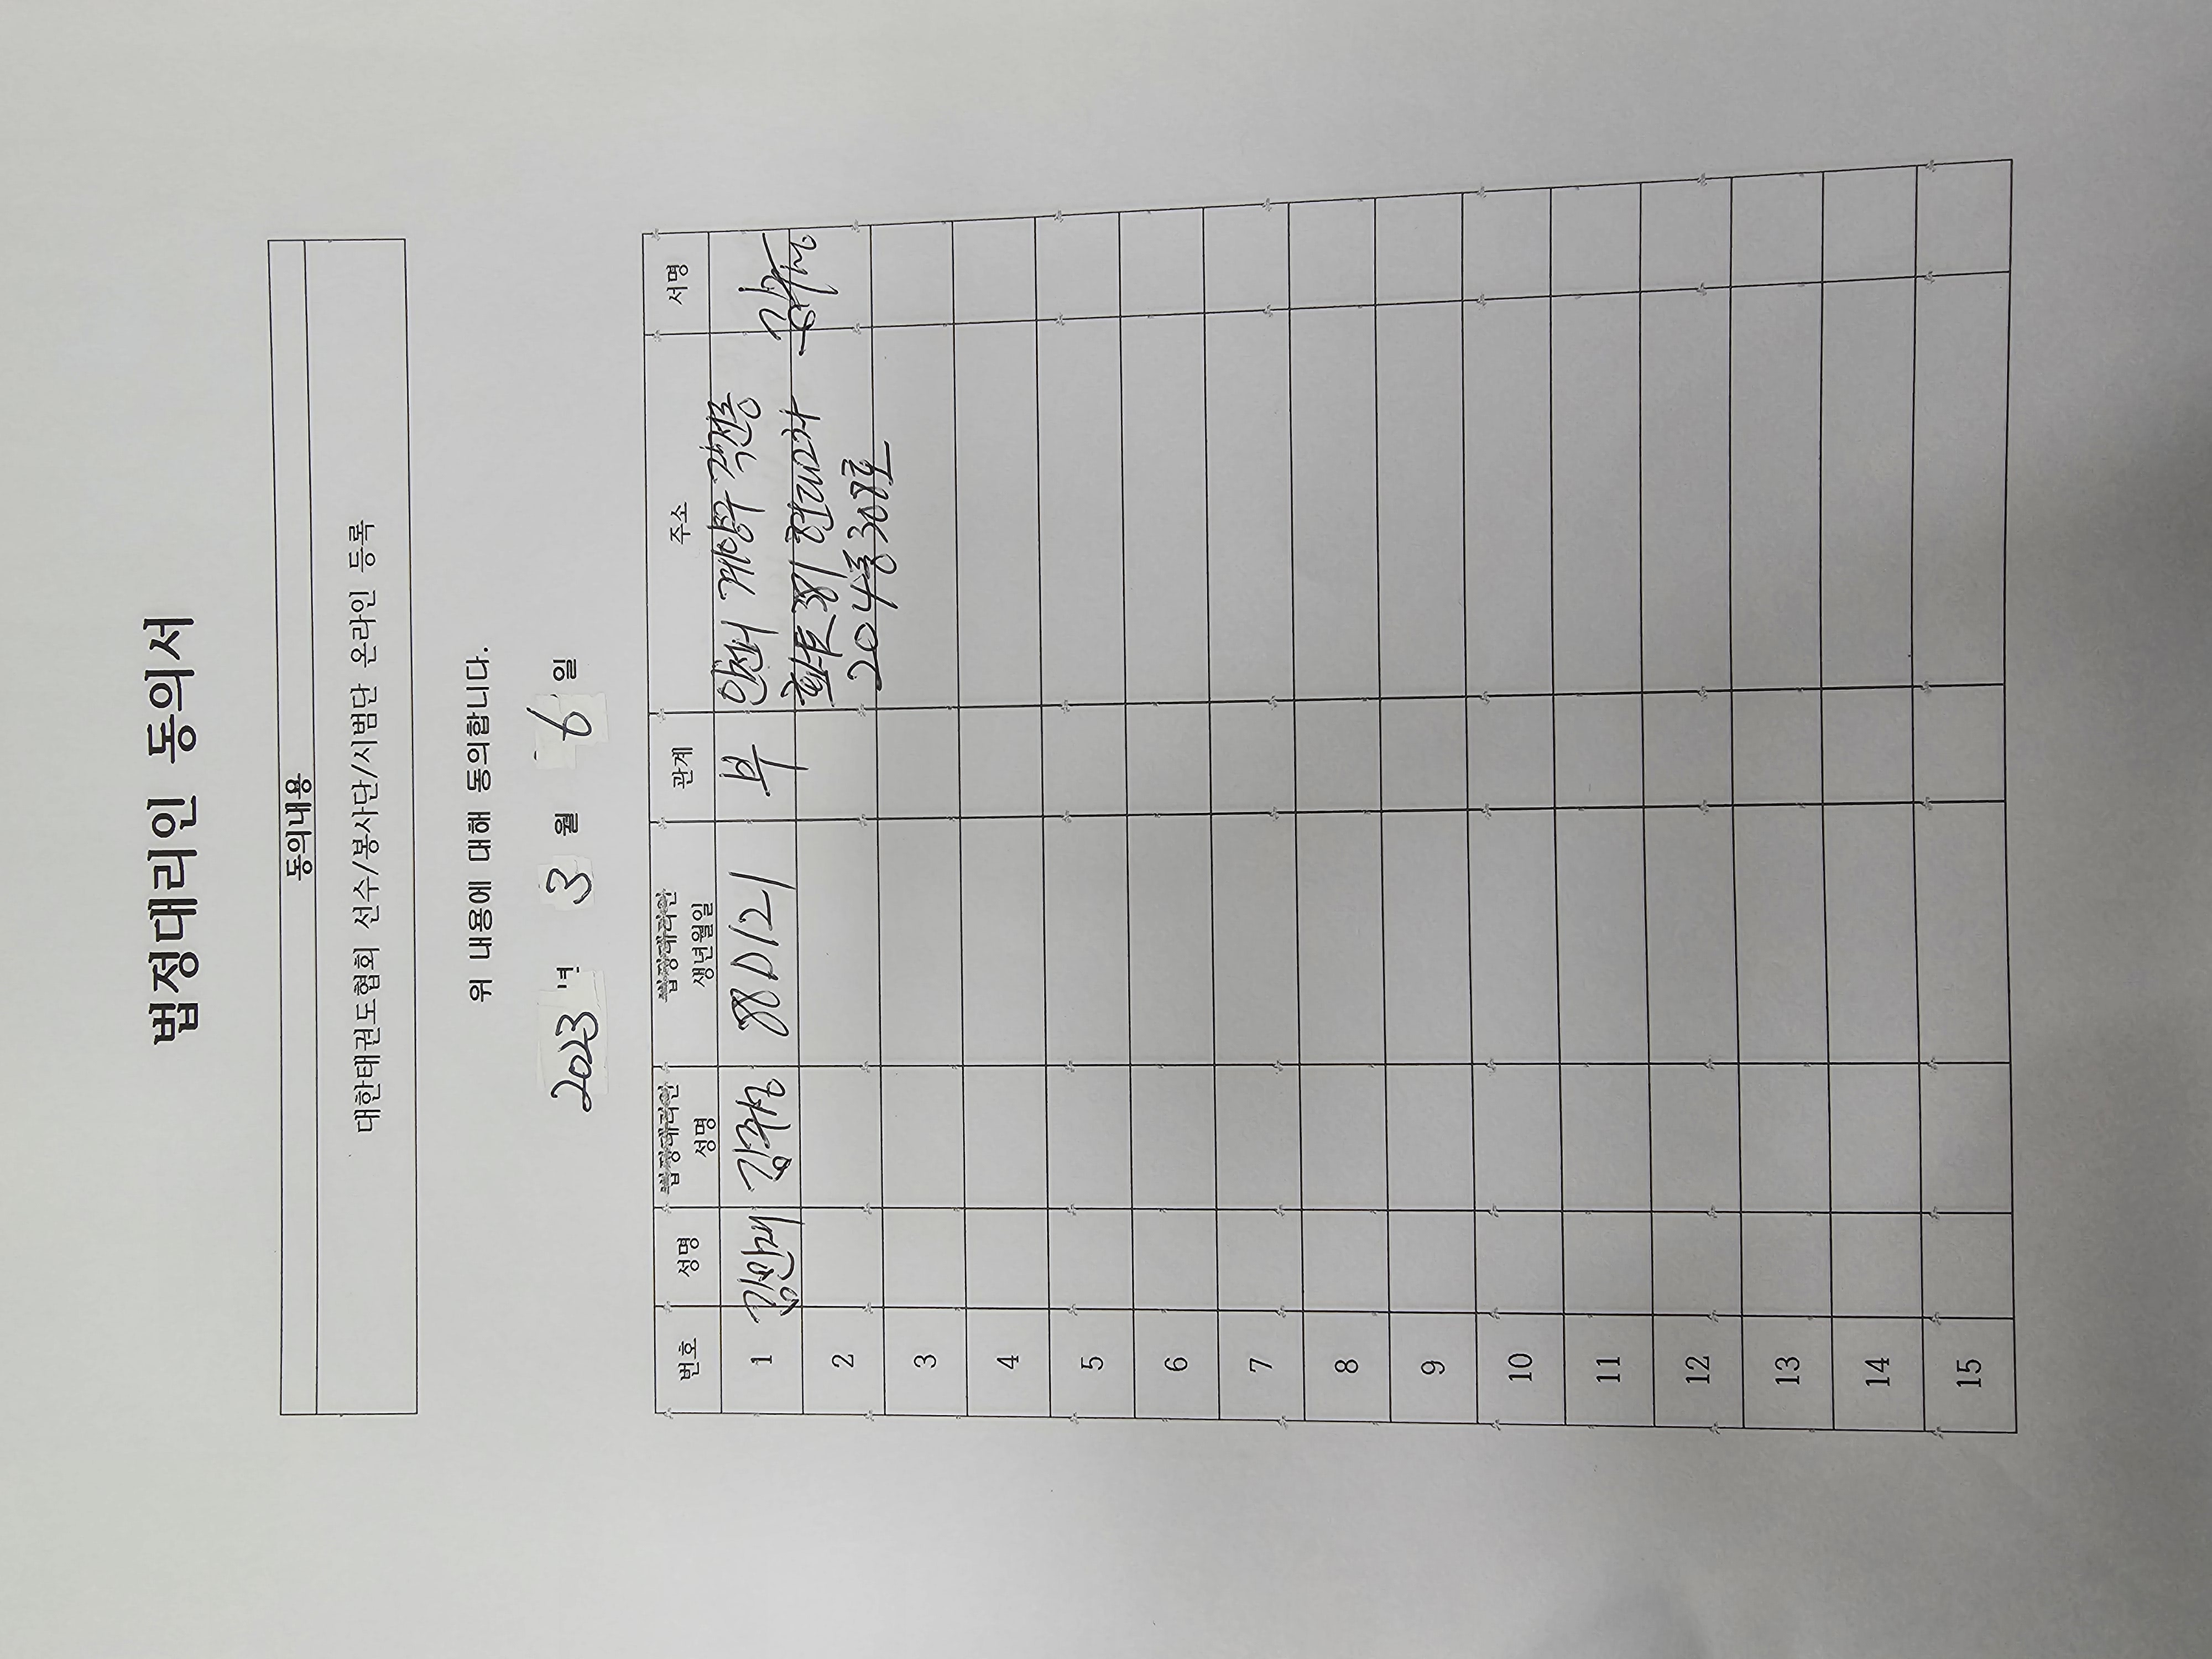 법정대리인 동의서
동의내용
대한태권도협회 선수/봉사단/시범단 온라인 등록
위 내용에 대해 동의합니다.
2023년 3월 6일
번호 성명 법정대리인 성명 법정대리인 생년월일 관계 주소 서명
1 880121 부 계양구
204동 308호
2
3
4
5
6
7
8
9
10
11
12
13
14
15